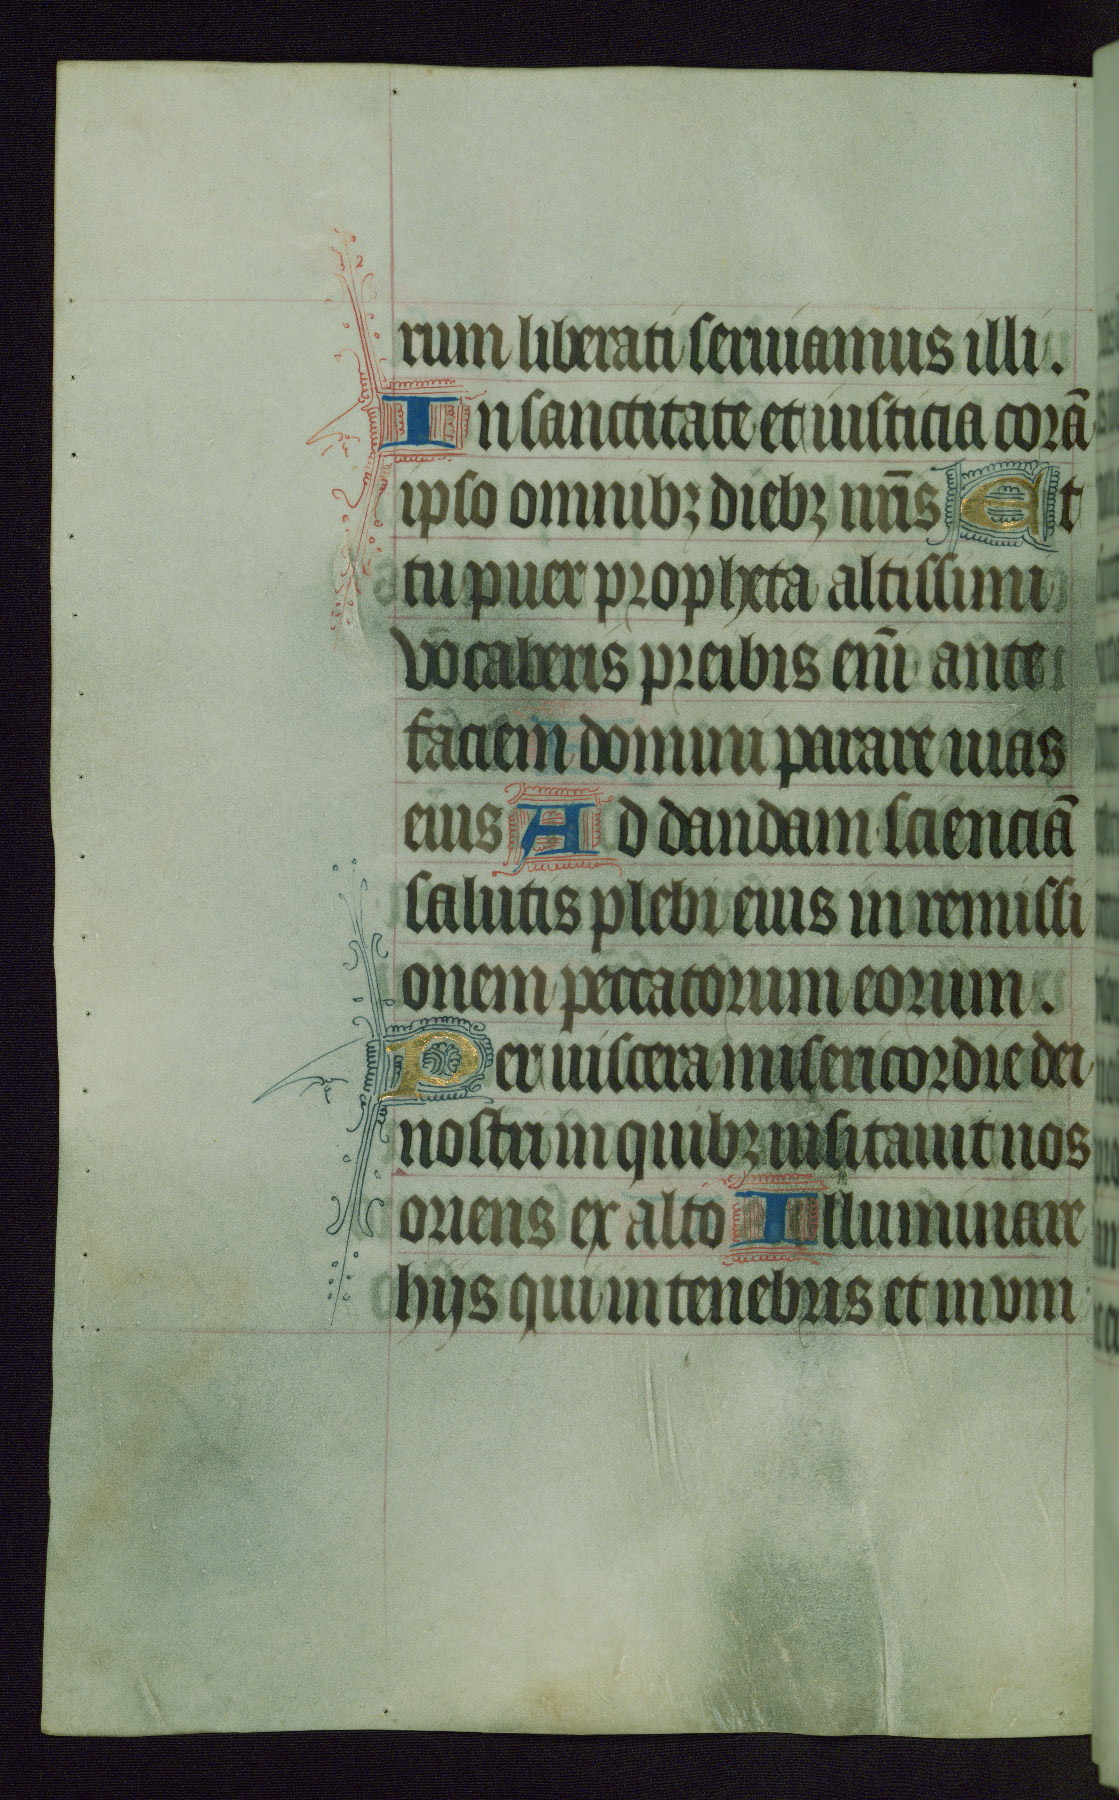 rum liberati seruiamus illi.
In sanctitate et iusticia corā
ipso omnibꝫ diebꝫ nr̄is Et
tu puer propheta altissimi
vocaberis preibis eni̅ ante
faciem domini parare uias
eius Ad dandam scienciā
salutis plebi eius in remissi
onem peccatorum eorum.
Per uiscera misericordie dei
nostri in quibꝫ uisitauit nos
oriens ex alto Illuminare
hijs qui in tenebris et in vm